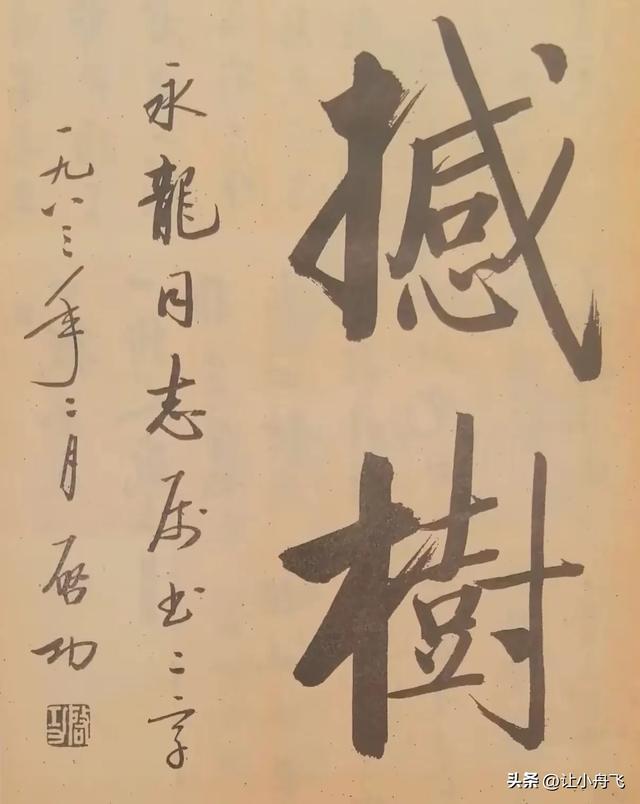 撼樹
永龍同志属书二字
一九八三年二月 启功
启功
头条 @让小舟飞